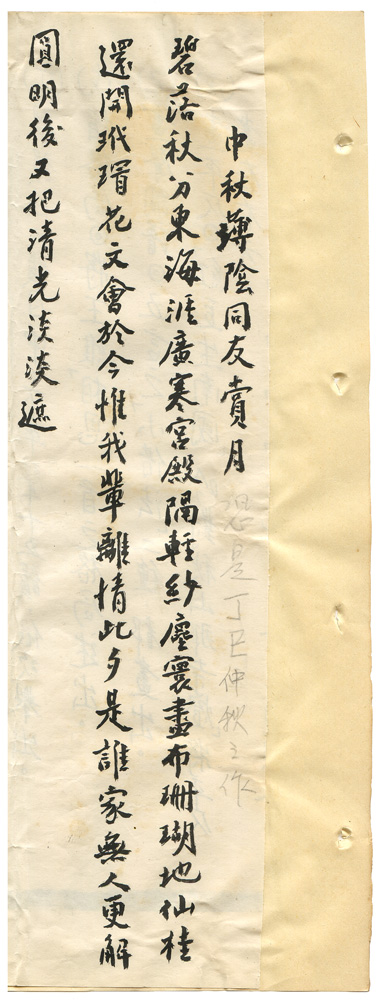 中秋薄陰同友賞月 恐是丁巳仲秋之作
碧落秋分東海涯廣寒宮殿隔輕紗塵寰盡布珊瑚地仙桂
還開玳瑁花文會於今惟我輩離情此夕是誰家無人更解
圓明後又把清光淡淡遮